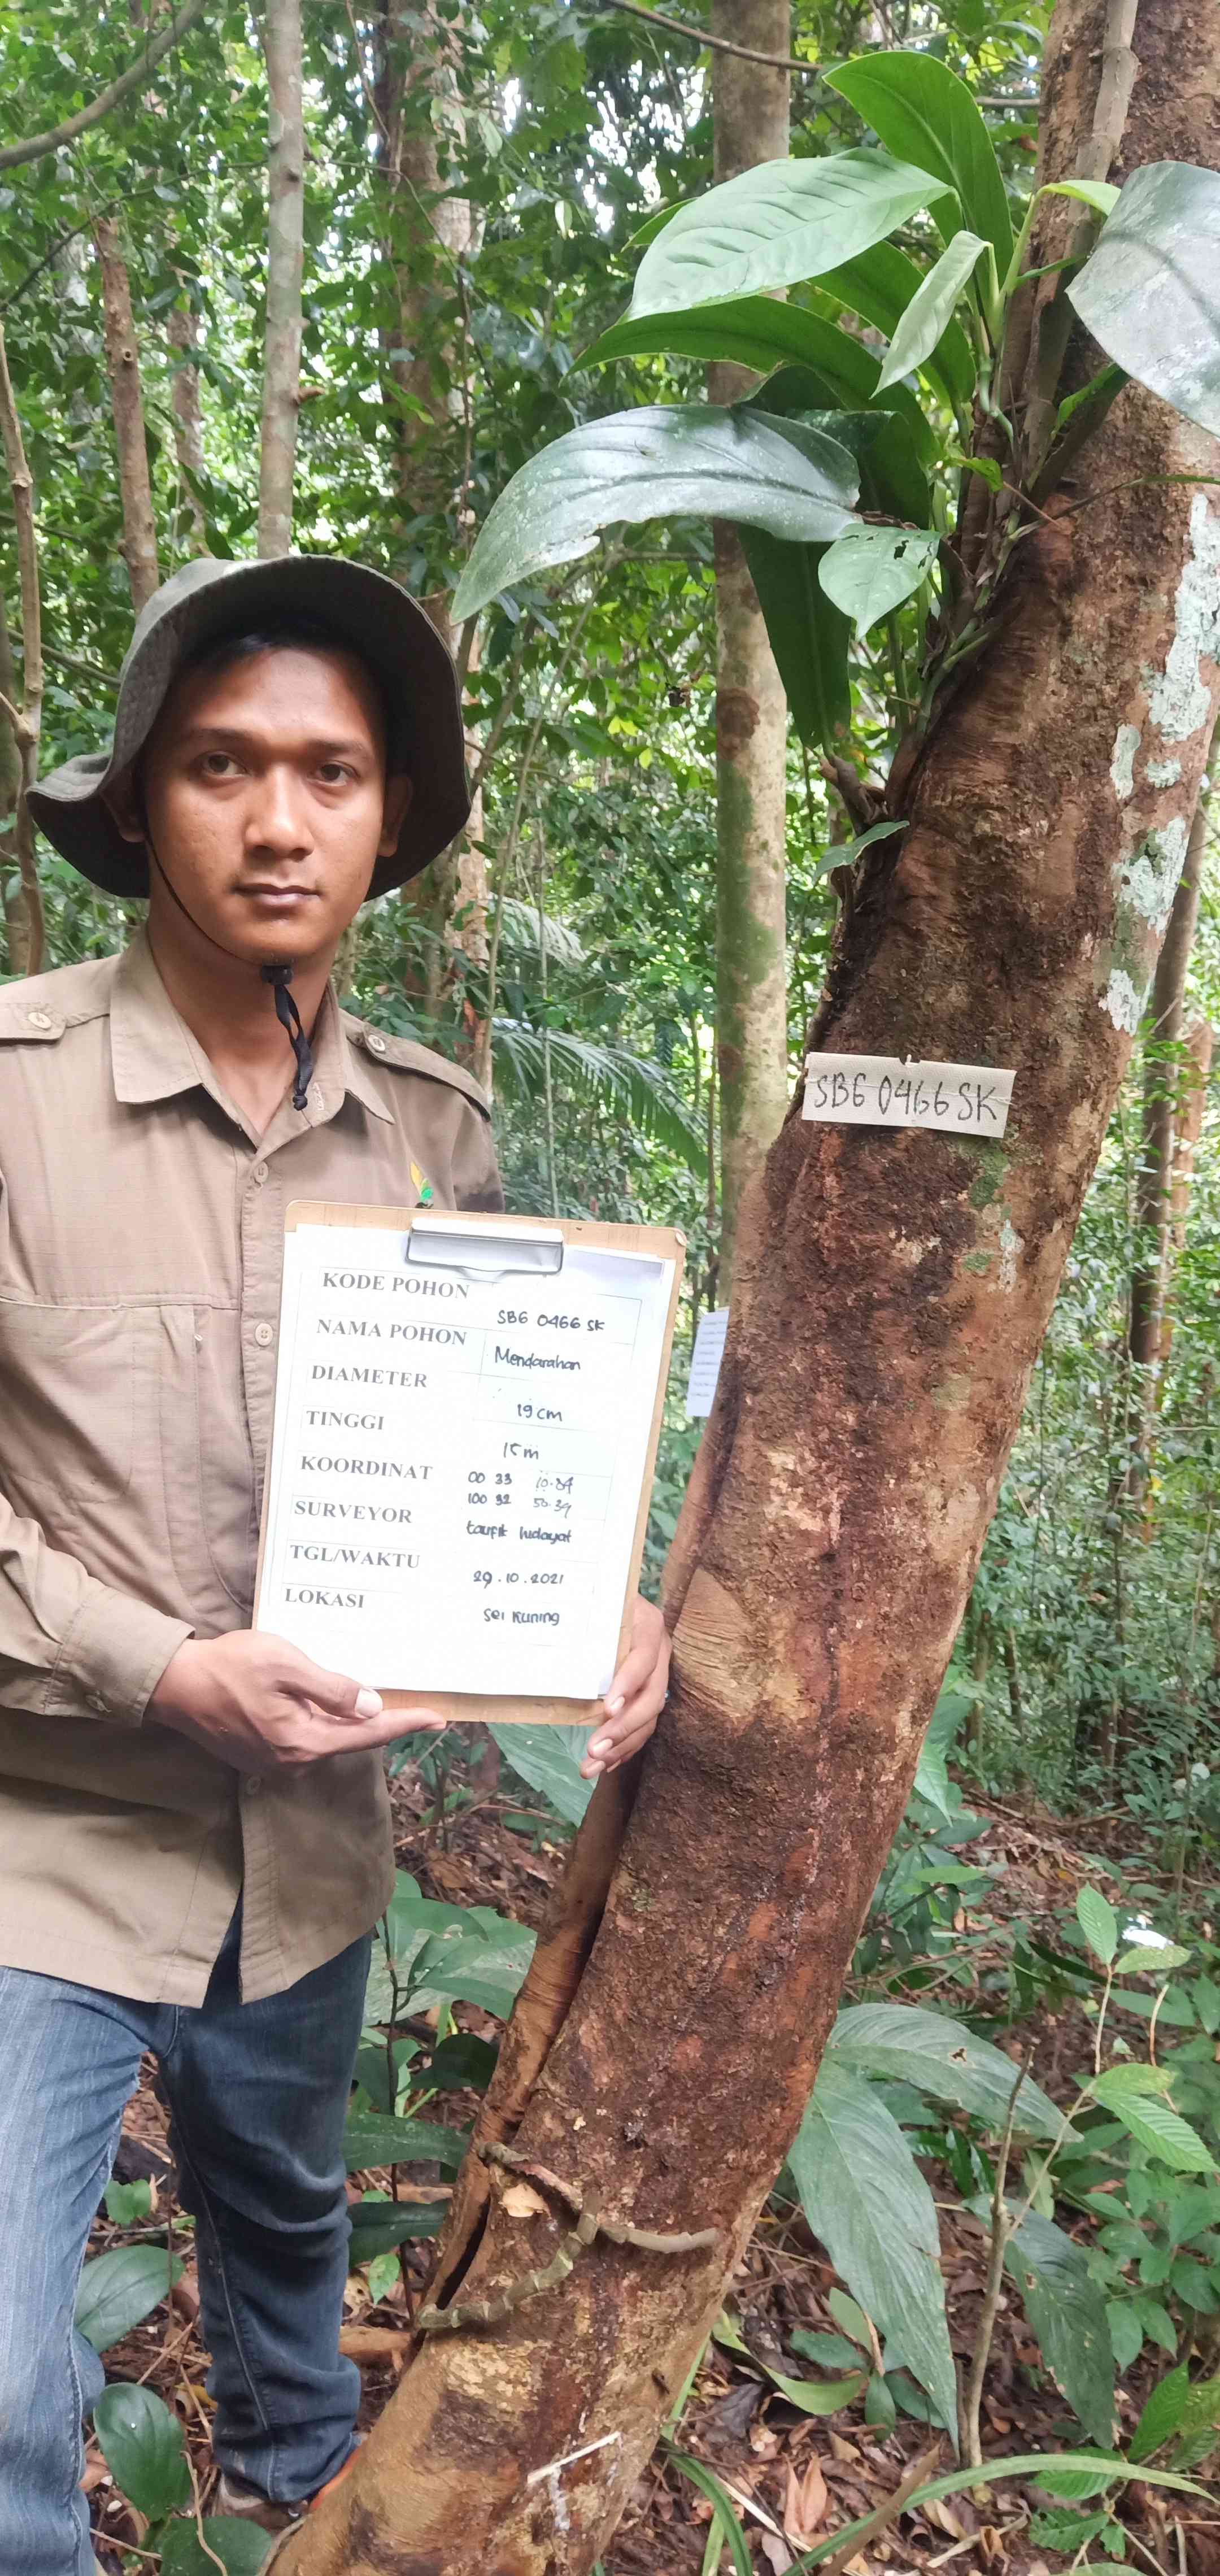 SBG 0466 SK
KODE POHON SBG 0466 SK
NAMA POHON Mendarahan
DIAMETER 19 cm
TINGGI 15 m
KOORDINAT 00 33 10.34
100 32 50.34
SURVEYOR taufik hidayat
TGL/WAKTU 29.10.2021
LOKASI Sei Kuning